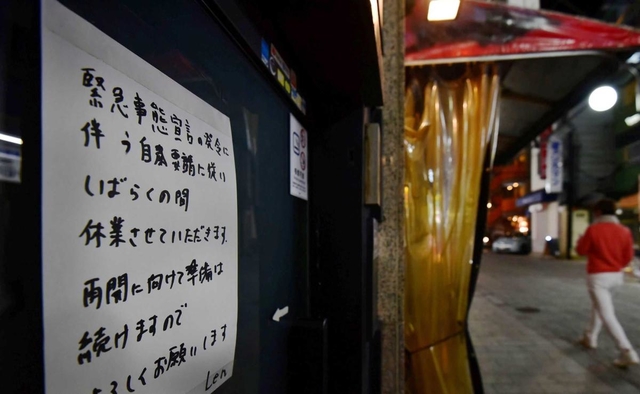 緊急事態宣言の発令に
伴う自粛要請に従い
しばらくの間
休業させていただきます.
再開に向けて準備は
続けますので
よろしくお願いします
Len